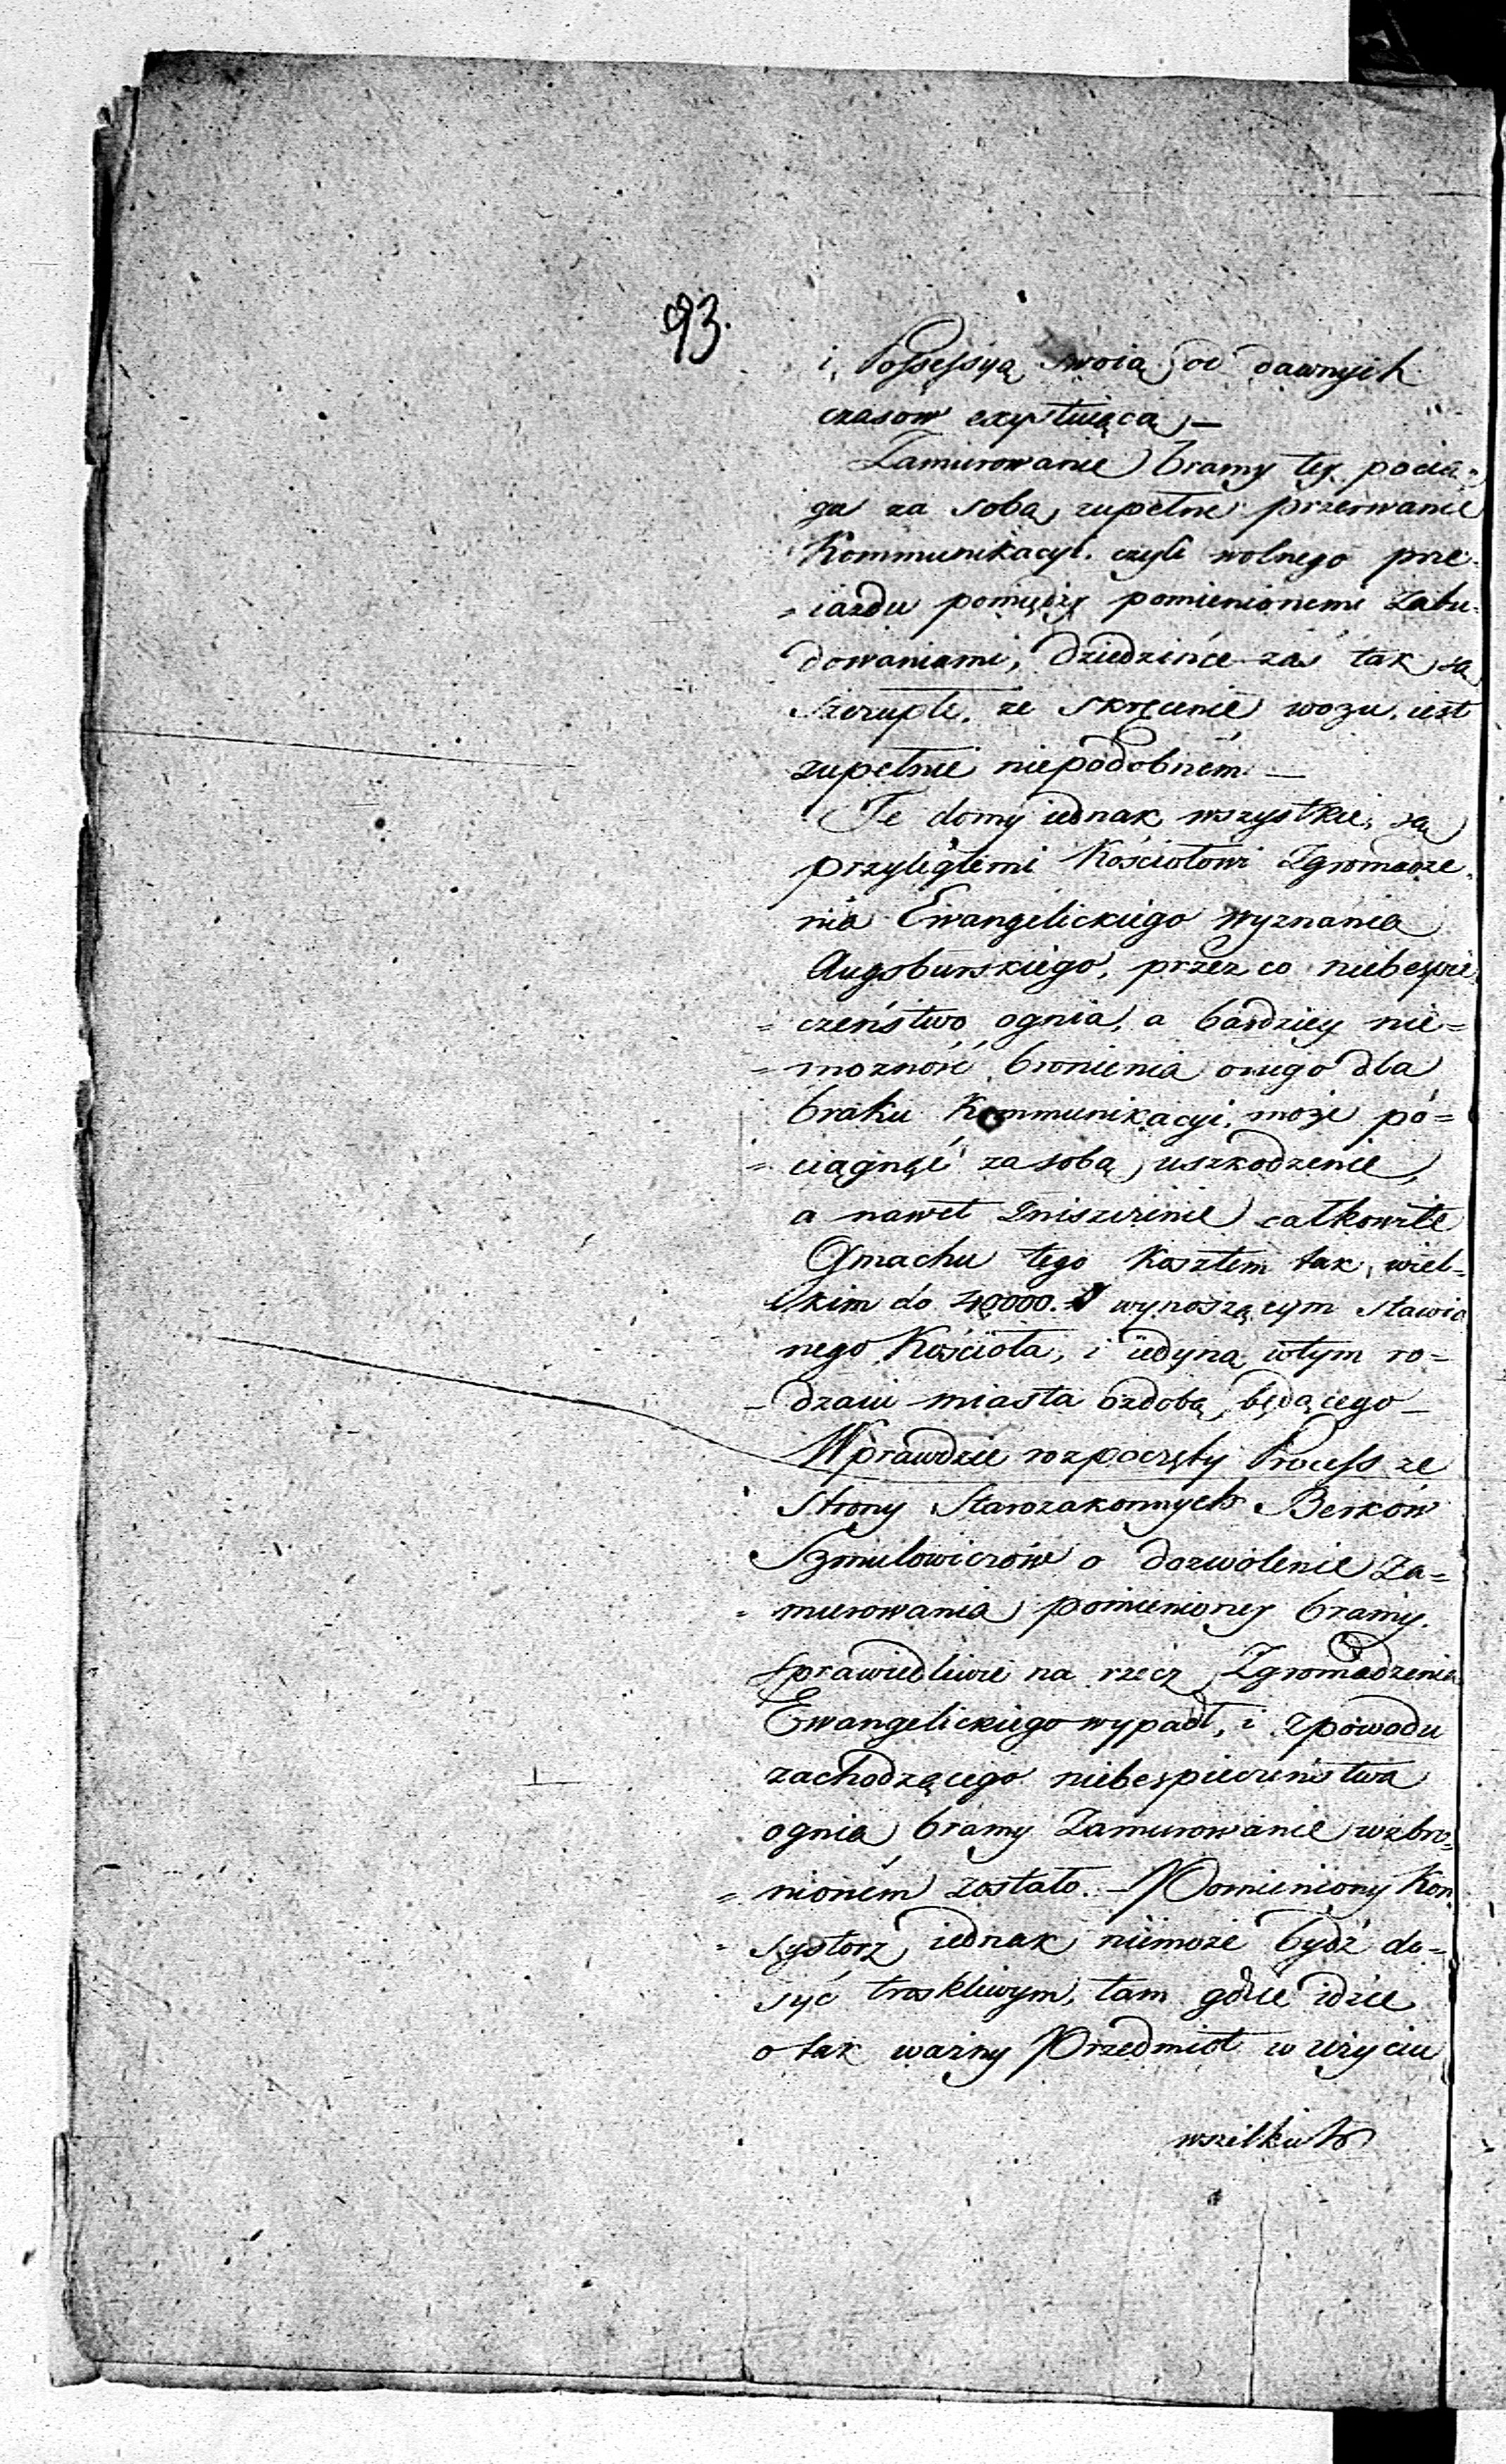 93.
i Possessyą swoią od dawnych
czasow exystuiącą, —
Zamurowanie bramy tey pocią-
ga za sobą zupełne przerwanie
Kommunikacyi, czyli wolnego prze-
iazdu pomiędzy pomienionemi Zabu-
dowaniami, dziedzince zaś tak są
szczupłe, ze skręcenie wozu, iest
zupełnie niepodobném —
Te domy iednak wszystkie, są
przyległemi Kościołowi Zgromadze-
nia Ewangelickiego wyznania
Augsburskiego, przez co niebespie-
= czeństwo ognia, a bardziey nie=
= mozność bronienia onego dla
braku Kommunikacyi, może po=
= ciągnąć za sobą uszkodzenie,
a nawet Zniszczenie całkowite
Gmachu tego Kosztem tak wiel-
kim do 40,000. wynoszącym stawia
nego Kościoła, i iedyną wtym ro=
- dzaiu miasta ozdobą będącego —
Wprawdzie rozpoczęty Process ze
strony Starozakonnych Berków
Szmulowiczów o dozwolenie Za=
= murowania pomienioney bramy,
sprawiedliwie na rzecz Zgromadzenia
Ewangelickiego wypadł, i zpowodu
zachodzącego niebespieczeństwa
ognia bramy Zamurowanie wzbro-
= nioném zostało. — Pomieniony Kon
= systorz iednak niemoże bydź do=
syć troskliwym, tam gdzie idzie
o tak wazny Przedmiot w użyciu
wszelkich